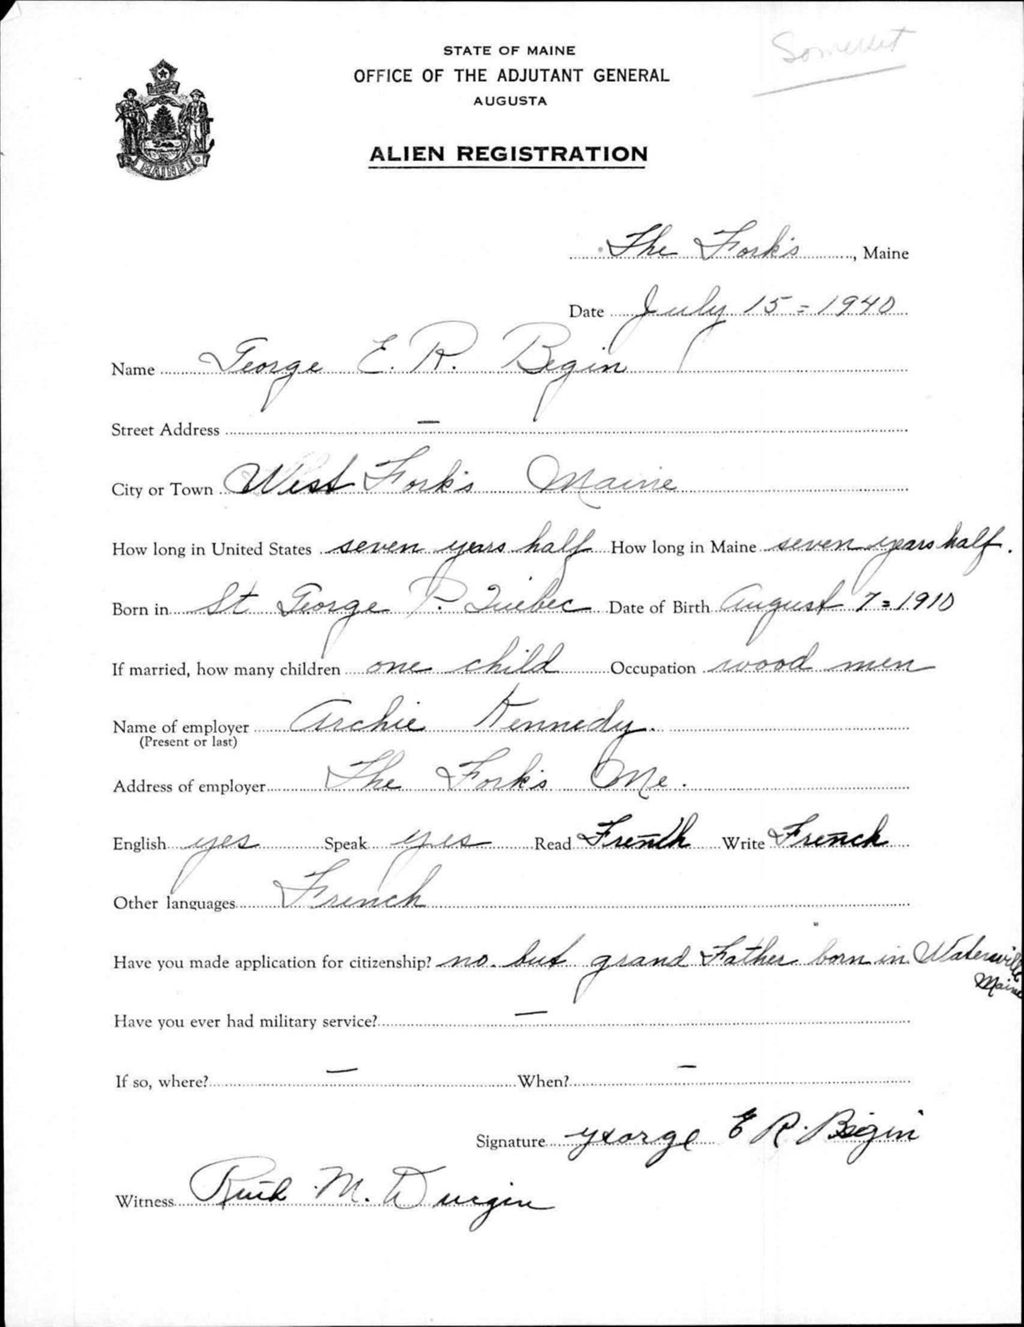 Somerset
STATE OF MAINE
OFFICE OF THE ADJUTANT GENERAL
AUGUSTA
ALIEN REGISTRATION
MAINE
The Fork's, Maine
Date July 15 = 1940
Name George E. R. Begin
Street Address —
City or Town West Fork's Maine
How long in United States seven years half How long in Maine seven years half.
Born in St George P. Quebec Date of Birth August 7 = 1910
If married, how many children one child Occupation wood men
Name of employer Archie Kennedy.
(Present or last)
Address of employer The Fork's Me.
English yes Speak yes Read French Write French
Other languages French
Have you made application for citizenship? no. but grand Father born in Waterville
Maine
Have you ever had military service? —
If so, where? — When? —
Signature George E R. Begin
Witness Ruth M. Durgin